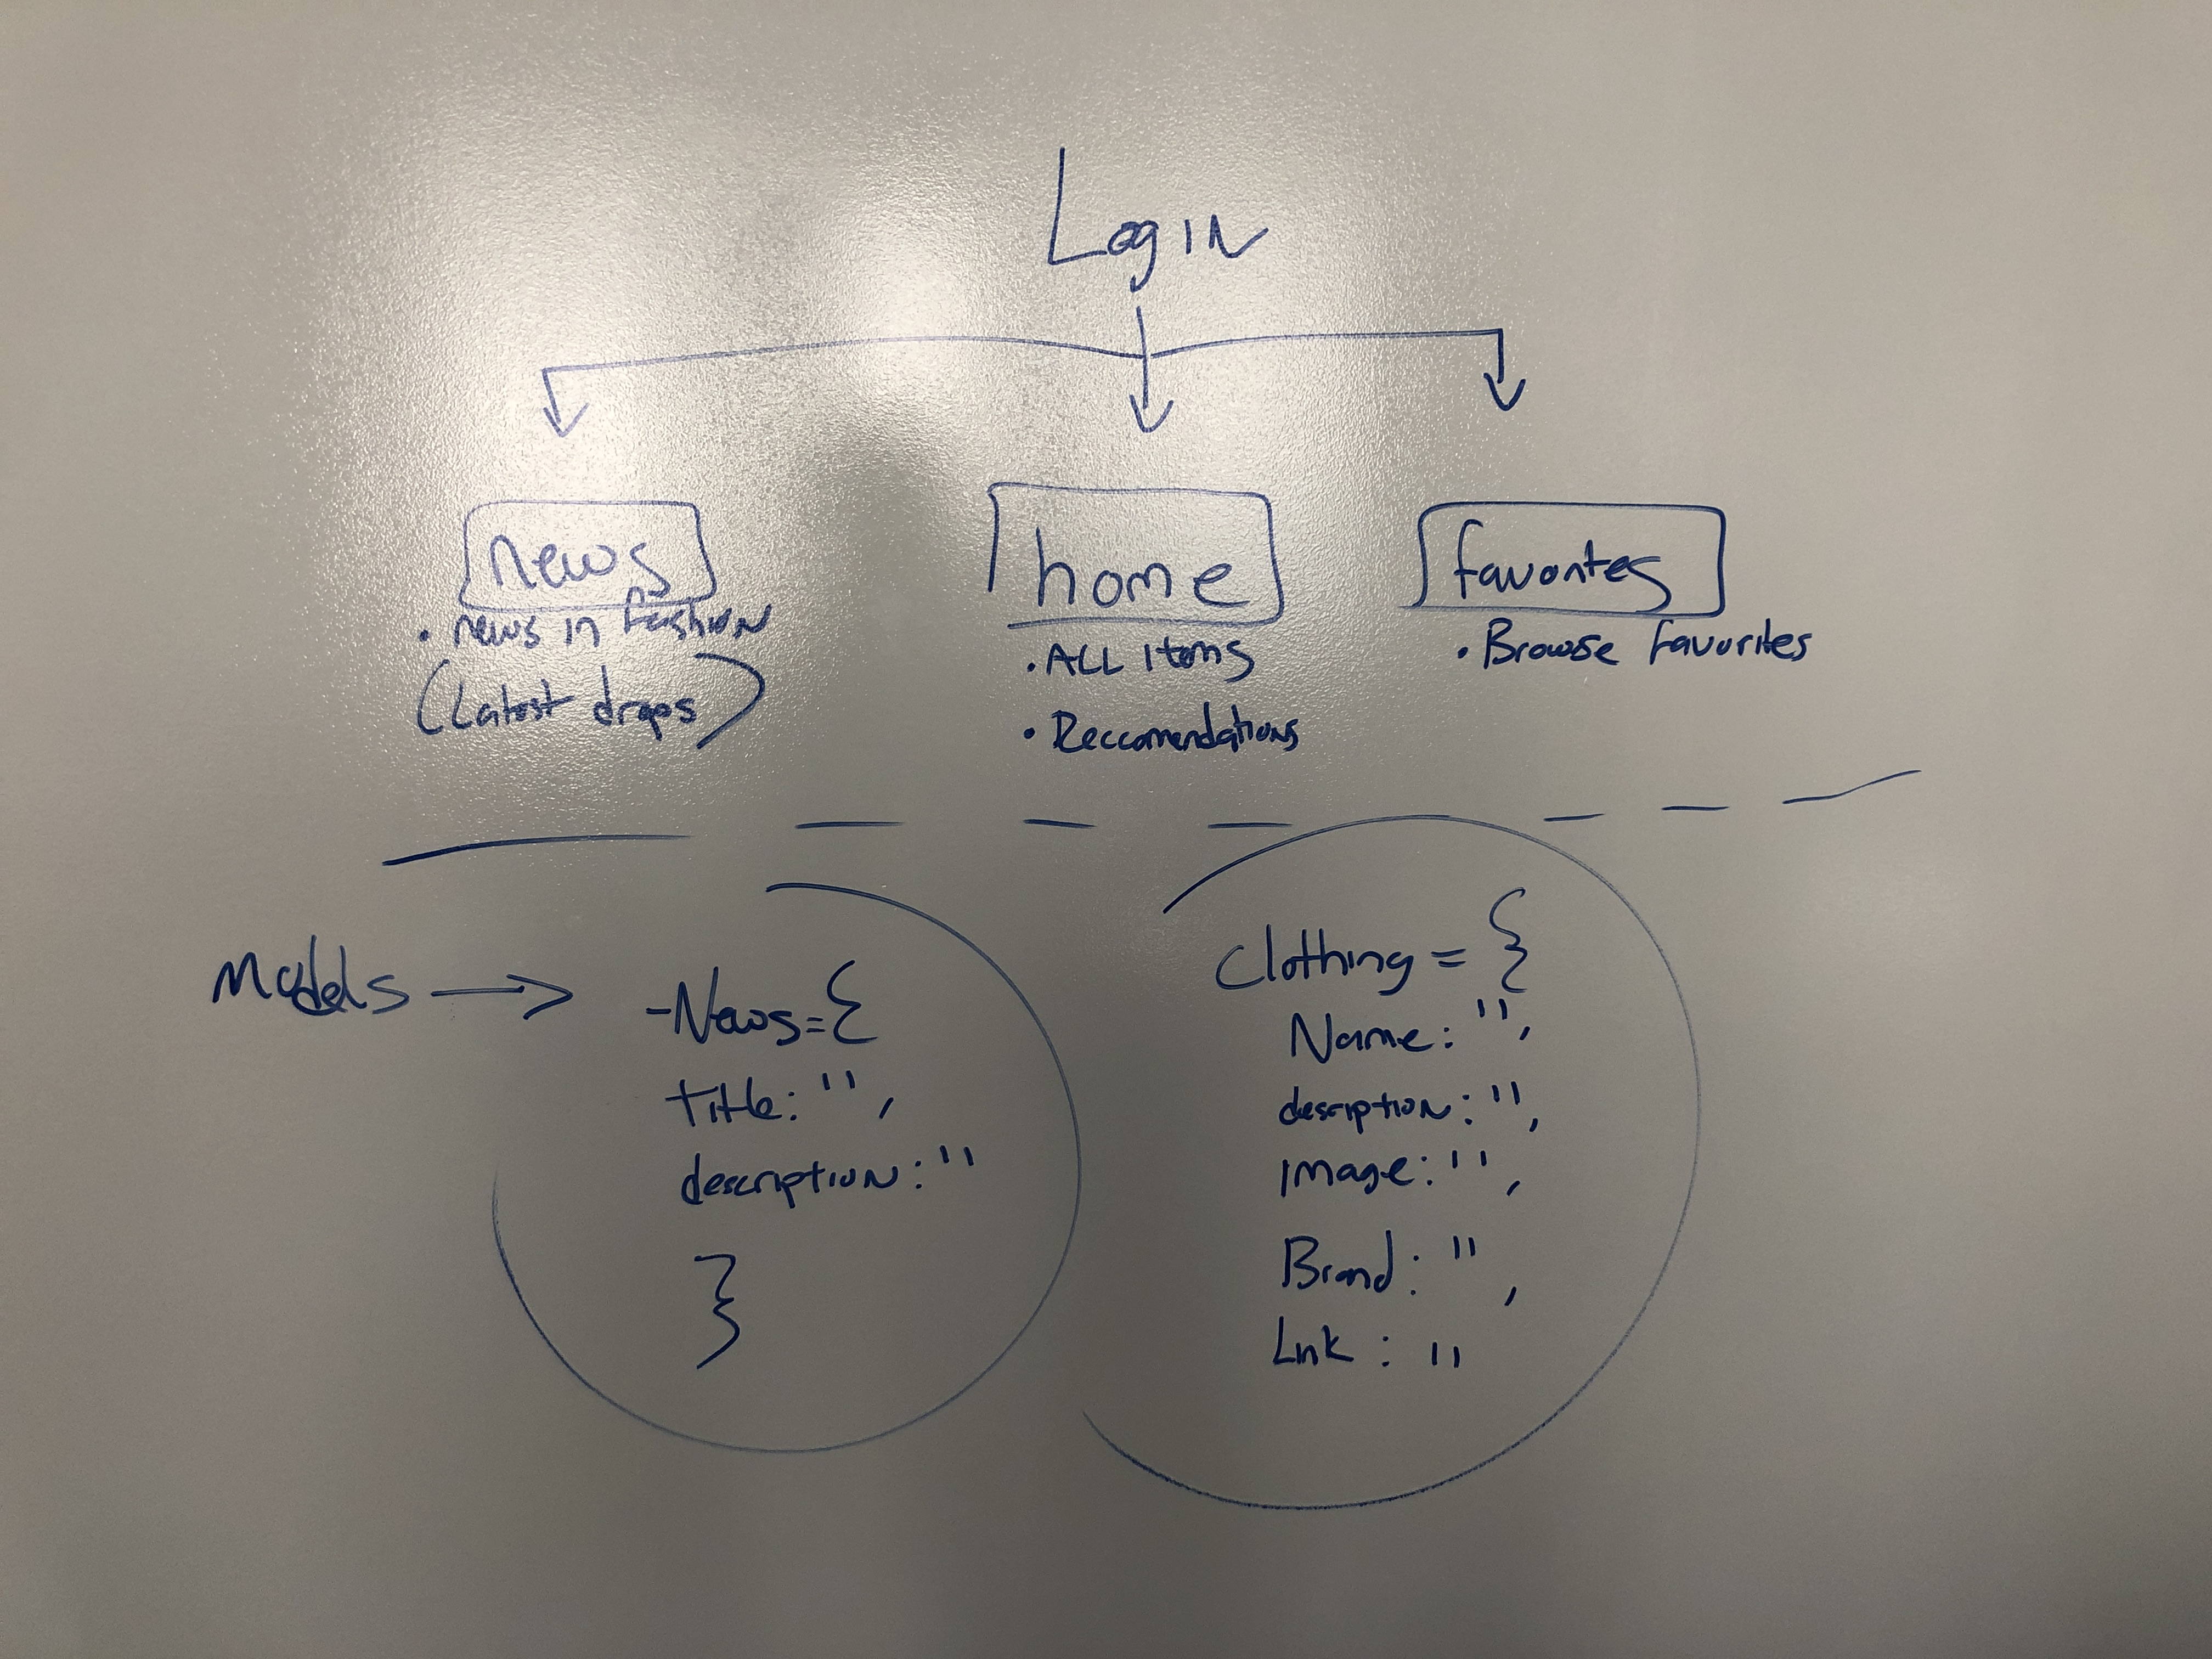 Login
news
home
favorites
• news in fashion
(Latest drops)
• ALL items
• Reccomendations
• Browse favorites
Models →
-News={
title: '',
description: ''
}
Clothing = {
Name: '',
description: '',
Image: '',
Brand: '',
Link: ''